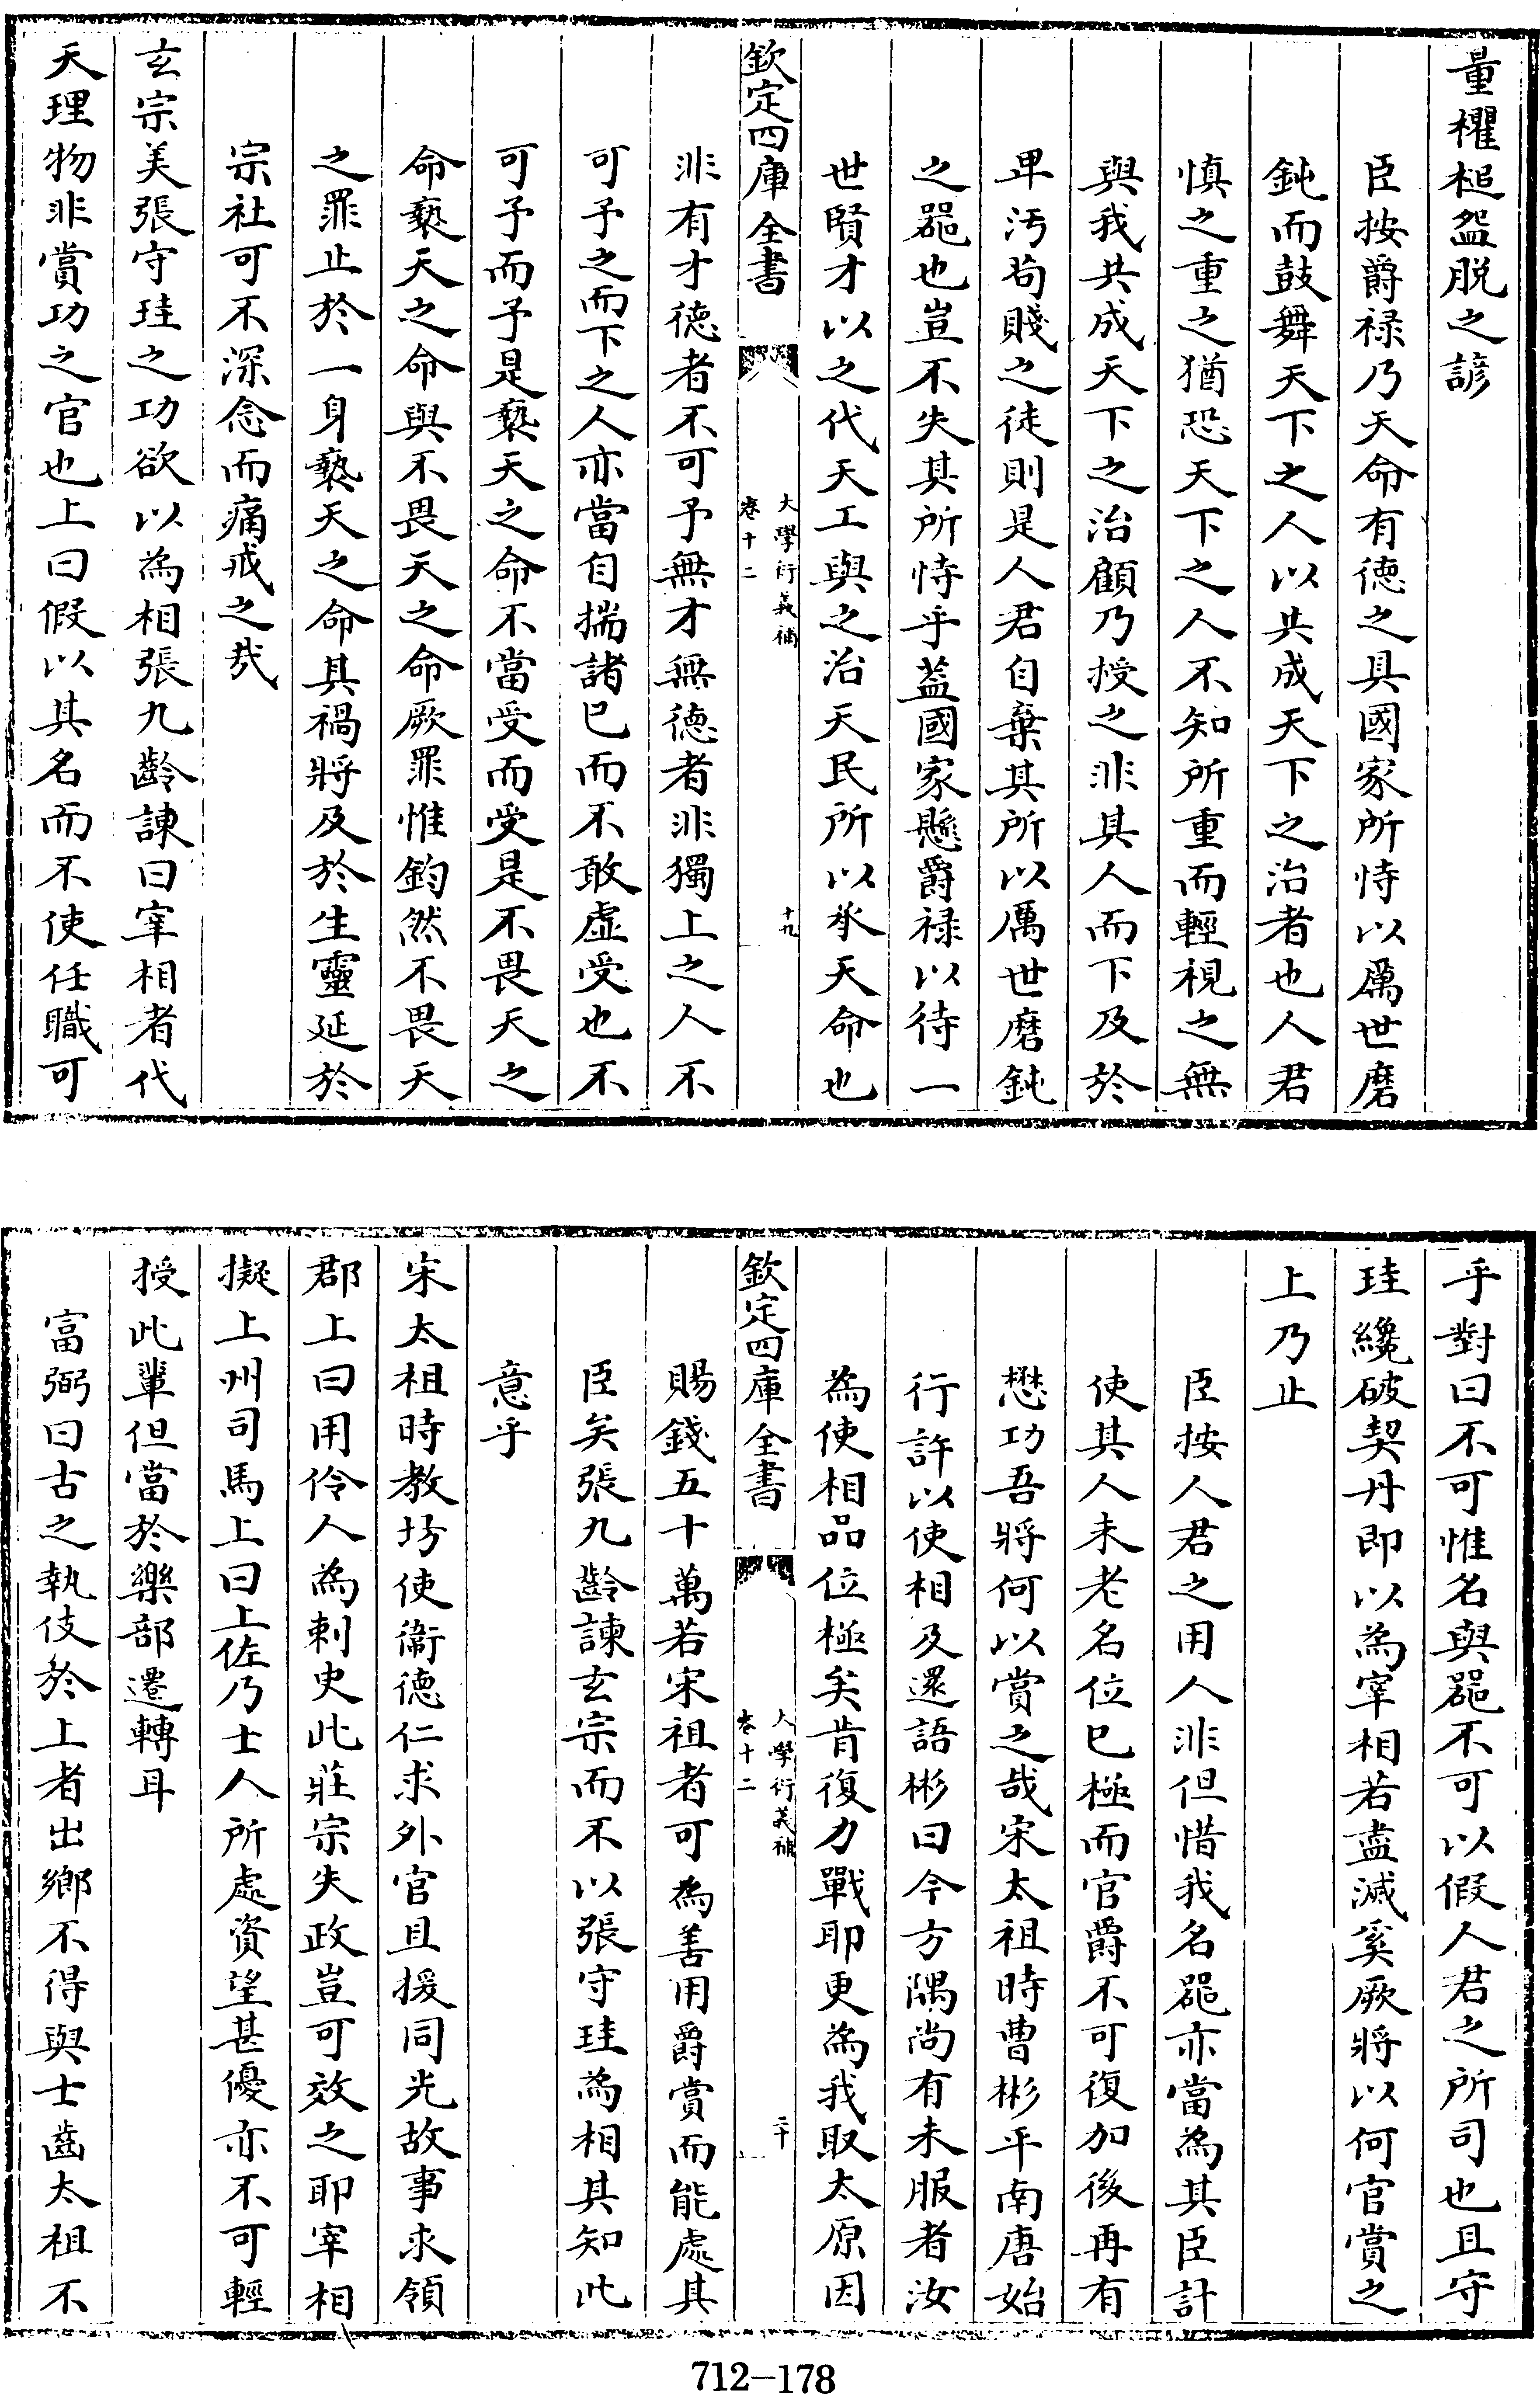 量欋槌盌脱之諺
臣按爵禄乃天命有徳之具國家所恃以厲世磨
鈍而鼓舞天下之人以共成天下之治者也人君
慎之重之猶恐天下之人不知所重而輕視之無
與我共成天下之治顧乃授之非其人而下及於
卑汚茍賤之徒則是人君自棄其所以厲世磨鈍
之器也豈不失其所恃乎蓋國家懸爵禄以待一
世賢才以之代天工與之治天民所以承天命也
欽定四庫全書
大學衍義補
卷十二
十九
非有才徳者不可予無才無徳者非獨上之人不
可予之而下之人亦當自揣諸已而不敢虚受也不
可予而予是褻天之命不當受而受是不畏天之
命褻天之命與不畏天之命厥罪惟鈞然不畏天
之罪止於一身褻天之命其禍將及於生靈延於
宗社可不深念而痛戒之哉
玄宗美張守珪之功欲以為相張九齡諫曰宰相者代
天理物非賞功之官也上曰假以其名而不使任職可
乎對曰不可惟名與器不可以假人君之所司也且守
珪纔破契丹即以為宰相若盡滅奚厥將以何官賞之
上乃止
臣按人君之用人非但惜我名器亦當為其臣計
使其人未老名位已極而官爵不可復加後再有
懋功吾將何以賞之哉宋太祖時曹彬平南唐始
行許以使相及還語彬曰今方隅尚有未服者汝
為使相品位極矣肯復力戰耶更為我取太原因
欽定四庫全書
大學衍義補
卷十二
二十
賜錢五十萬若宋祖者可為善用爵賞而能處其
臣矣張九齡諫玄宗而不以張守珪為相其知此
意乎
宋太祖時教坊使衞德仁求外官且援同光故事求領
郡上曰用伶人為刺史此莊宗失政豈可效之耶宰相
擬上州司馬上曰上佐乃士人所處資望甚優亦不可輕
授此輩但當於樂部遷轉耳
富弼曰古之執伎於上者出鄉不得與士齒太祖不
712-178